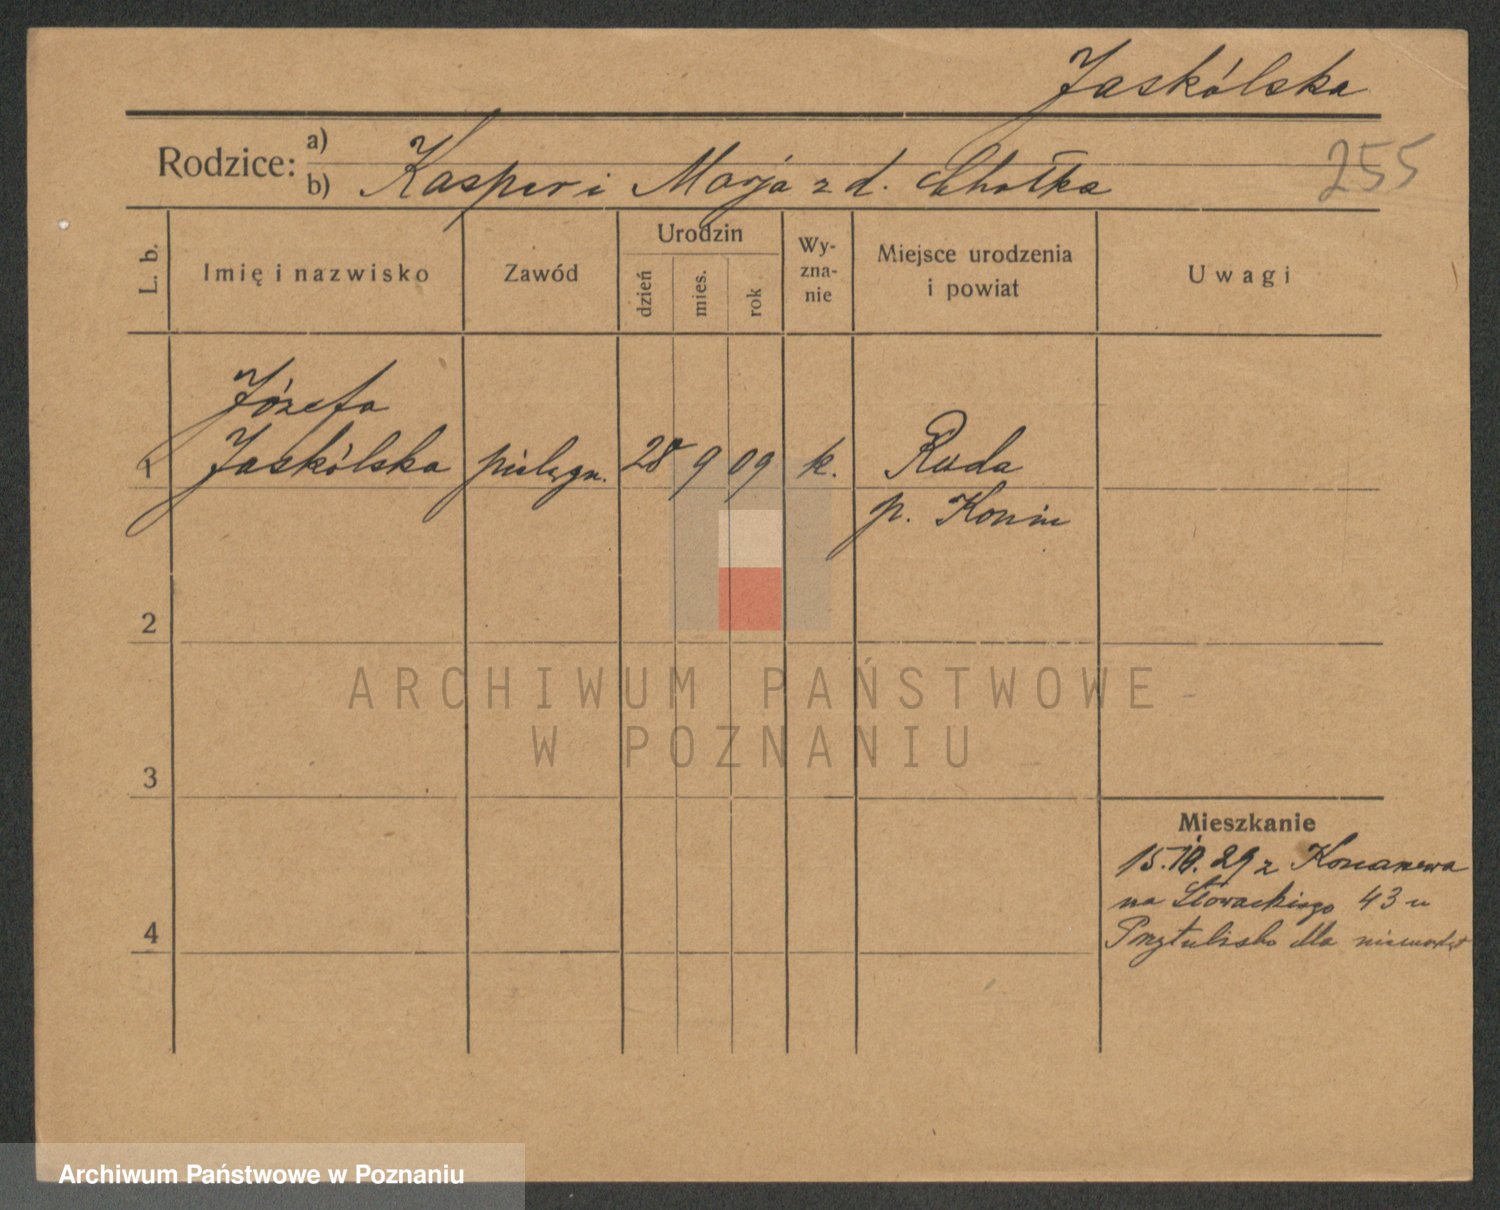 Jaskólska
Rodzice: a)
b) Kasper i Marja z d.
255
L. b.
Imię i nazwisko
Zawód
Urodzin
dzień
mies.
rok
Wy-
zna-
nie
Miejsce urodzenia
i powiat
Uwagi
Józefa
1 Jaskólska pielęgn. 28 9 09 k. Ruda
p. Konin
2
ARCHIWUM PAŃSTWOWE
W POZNANIU
3
Mieszkanie
15.10.29 z
na Słowackiego 43 u
4
Przytulisko dla
Archiwum Państwowe w Poznaniu